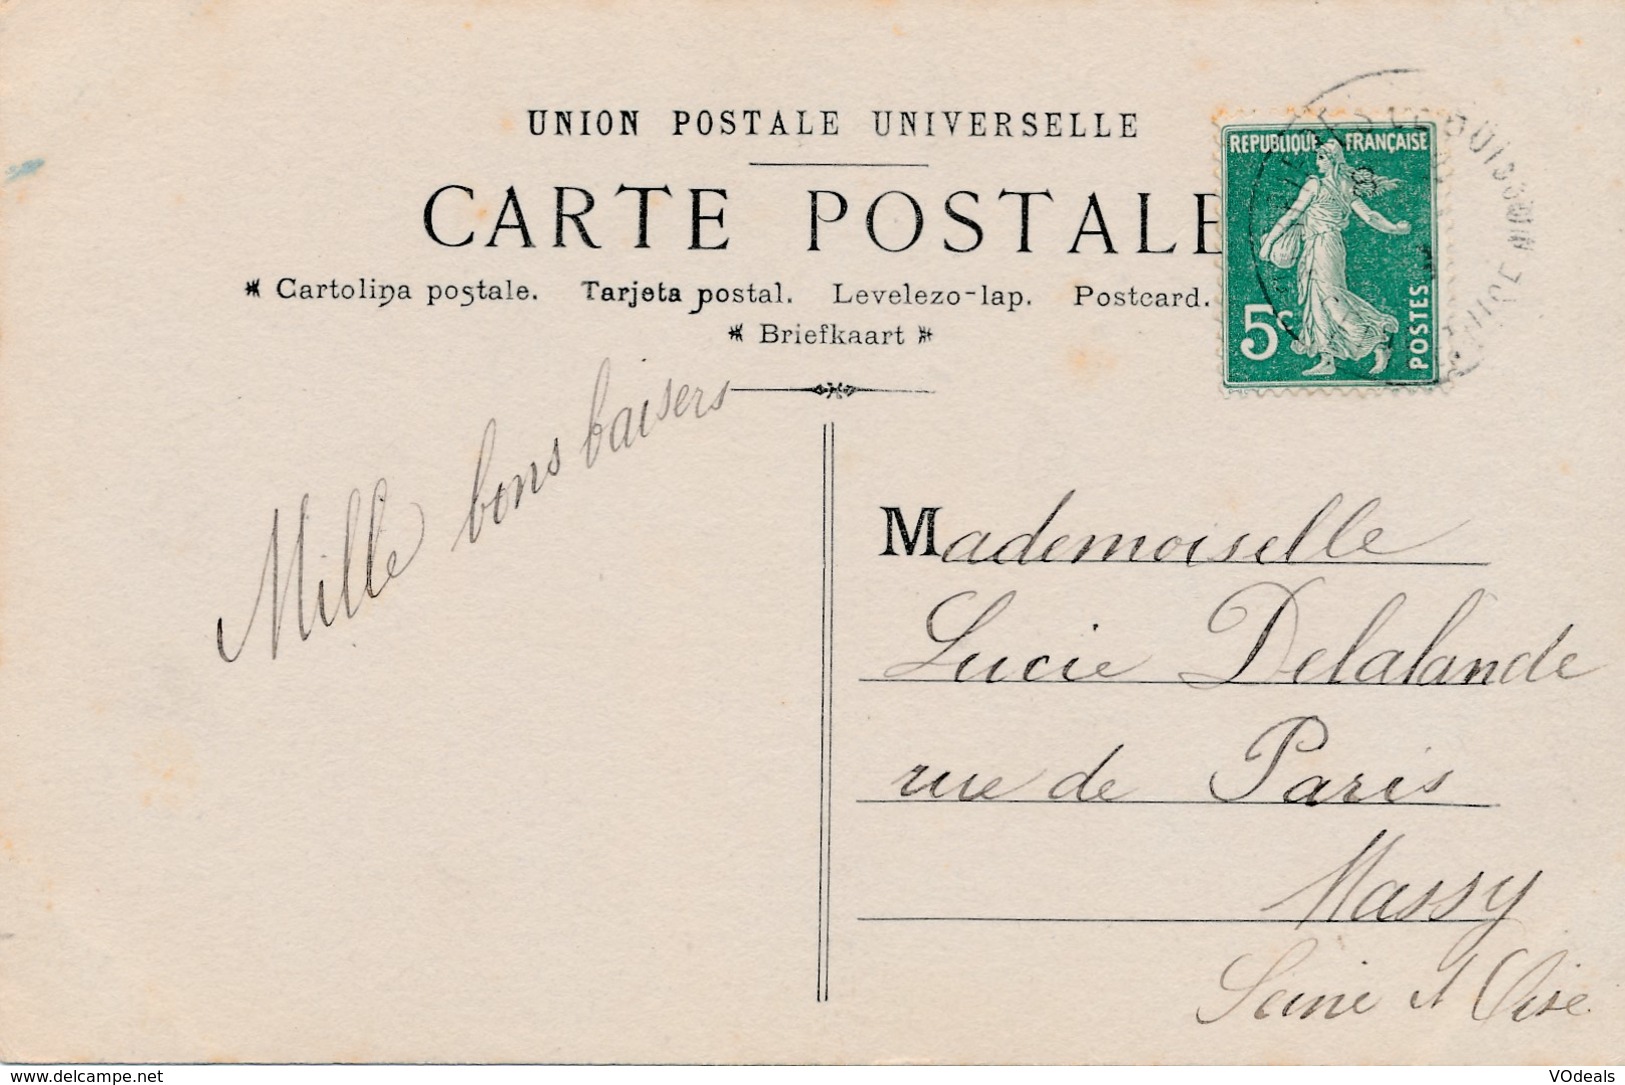 UNION POSTALE UNIVERSELLE
CARTE POSTALE
Cartolina postale. Tarjeta postal. Levelezo-lap. Postcard.
Briefkaart
REPUBLIQUE FRANÇAISE
5c
POSTES
Mille bons baisers
Mademoiselle
Lucie Delalande
rue de Paris
Massy
Seine et Oise
www.delcampe.net
VOdeals